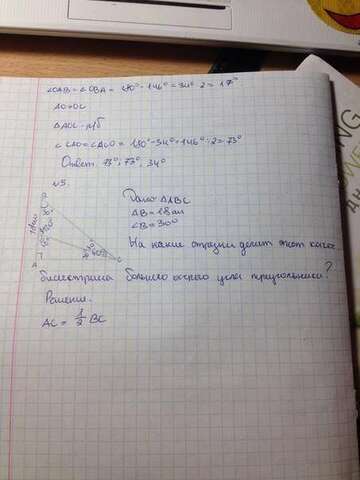 ∠OAB = ∠OBA = 180° - 146° = 34° : 2 = 17°
AO = OC
ΔAOC - р/б
∠CAO = ∠ACO = 180° - 34° = 146° : 2 = 73°
Ответ: 73°; 73°, 34°
√5.
Дано ΔABC
AB = 18 см
∠B = 30°
18 см
30°
A
C
На какие отрезки делит этот катет
биссектриса большего острого угла треугольника?
Решение.
AC = 1/2 BC